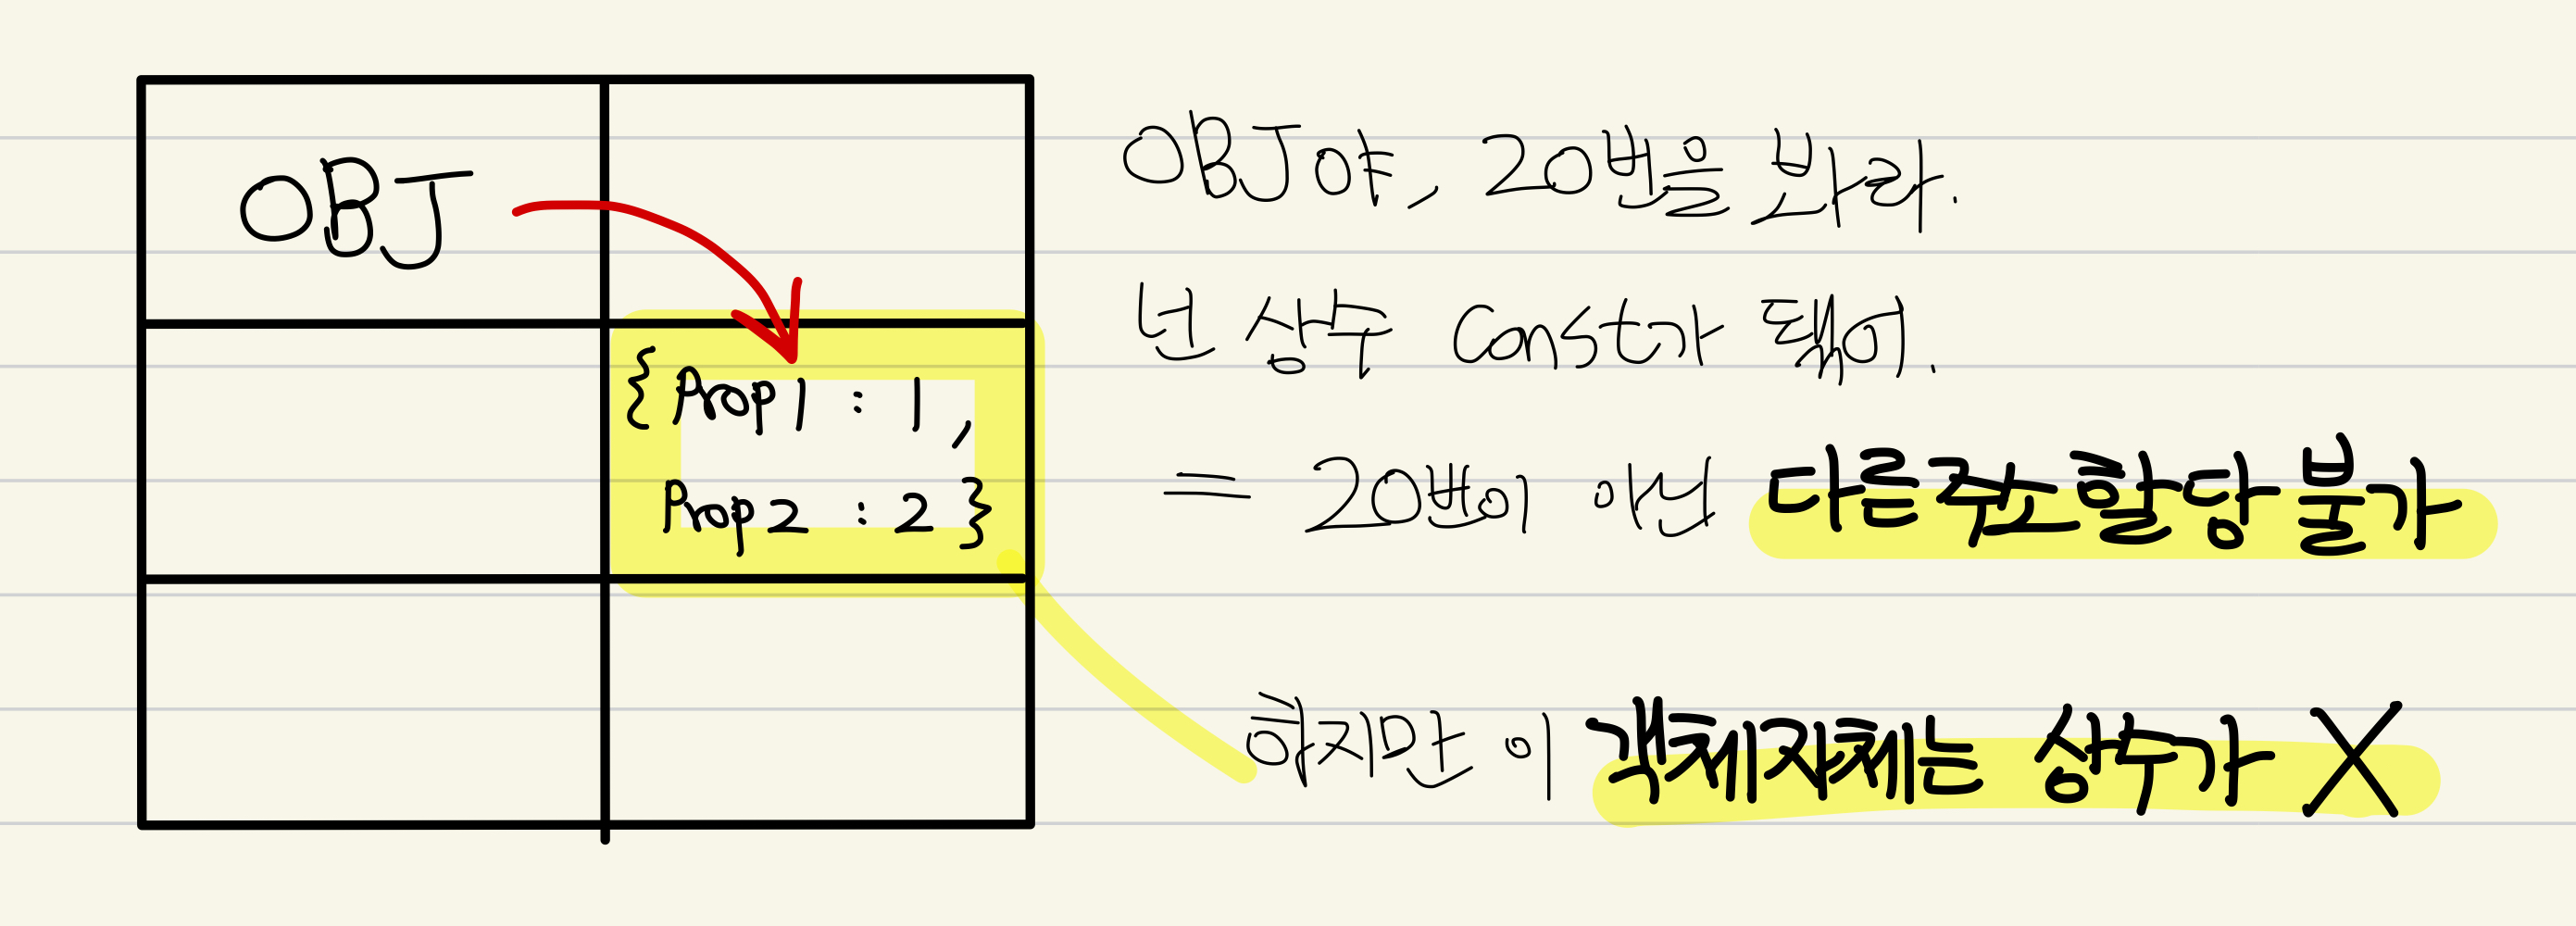 OBJ
{Prop1 : 1,
Prop2 : 2}
OBJ야, 20번을 봐라.
넌 상수 Const가 됐어.
= 20번이 아닌 다른 주소 할당 불가
하지만 이 객체 자체는 상수가 X